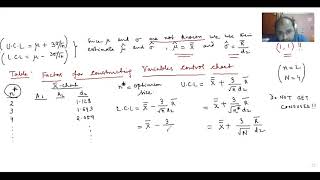 U.C.L = μ + 3σ/√n
L.C.L = μ - 3σ/√n
Since μ and σ are not known we use their
estimate μ̂ and σ̂, μ̂ = x̿ and σ̂ = R̄/d₂
(1, 1)
n = 2
N = 4
Table: Factor for constructing Variables control chart
X-chart
n* A₁ A₂ d₂
2 1.128
3 1.693
4 2.059
n* = optimum
size
U.C.L = x̿ + 3/√n* R̄/d₂ = x̿ + 3/√n R̄/d₂
L.C.L = x̿ - 3/√n* R̄/d₂
= x̿ - 3/ = x̿ + 3/√N R̄/d₂
DO NOT GET
CONFUSED!!